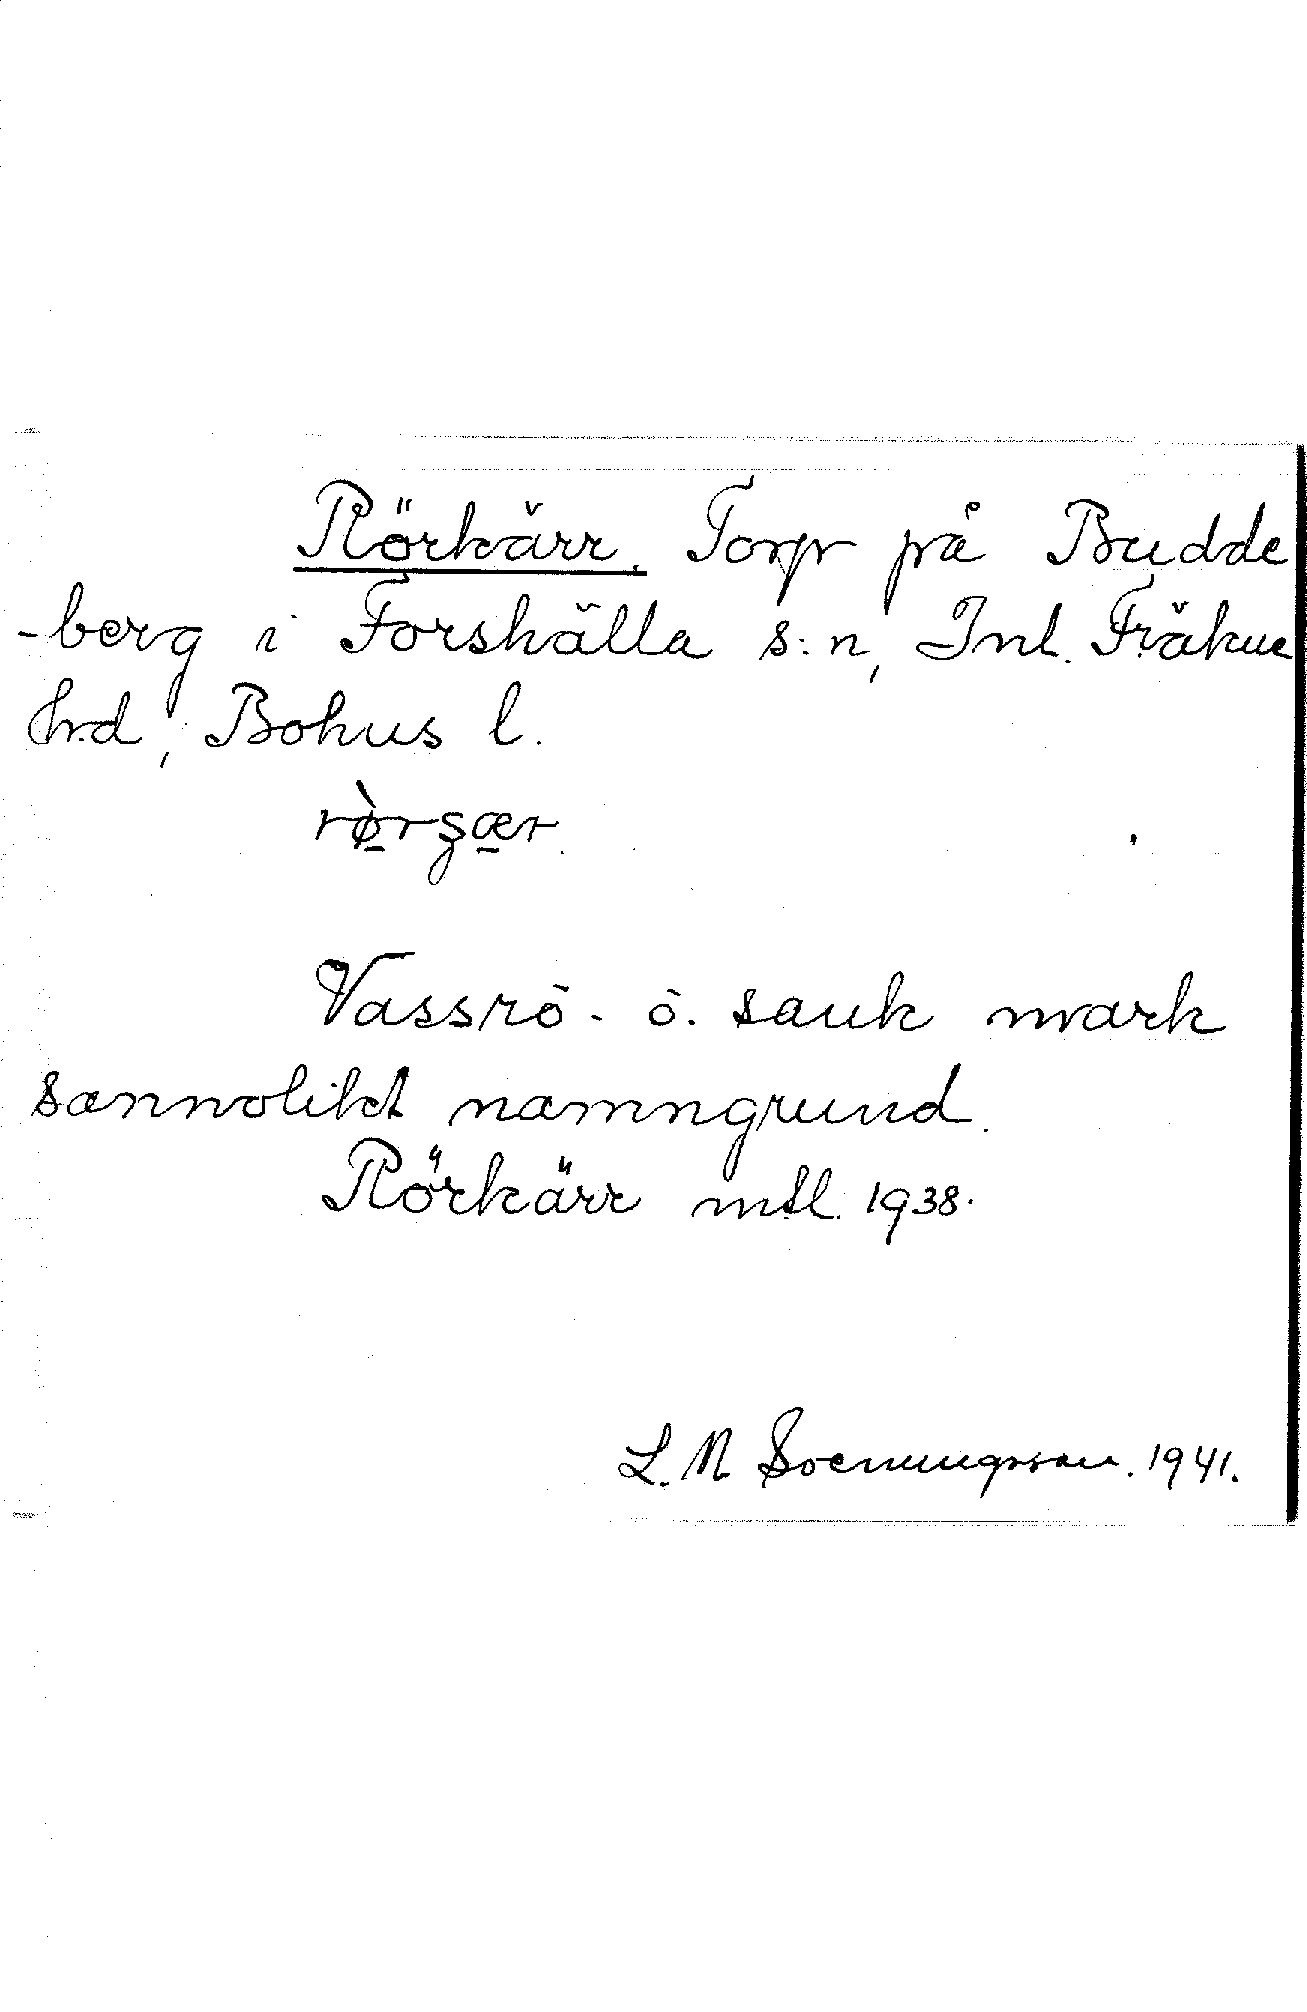 Rörkärr. Torp på Budde
-berg i Forshälla s:n, Inl. Fräkne
hrd, Bohus l.
rø̀rgær.
Vassrö- o. sank mark
sannolikt namngrund.
Rörkärr mtl. 1938.
L. N. 1941.